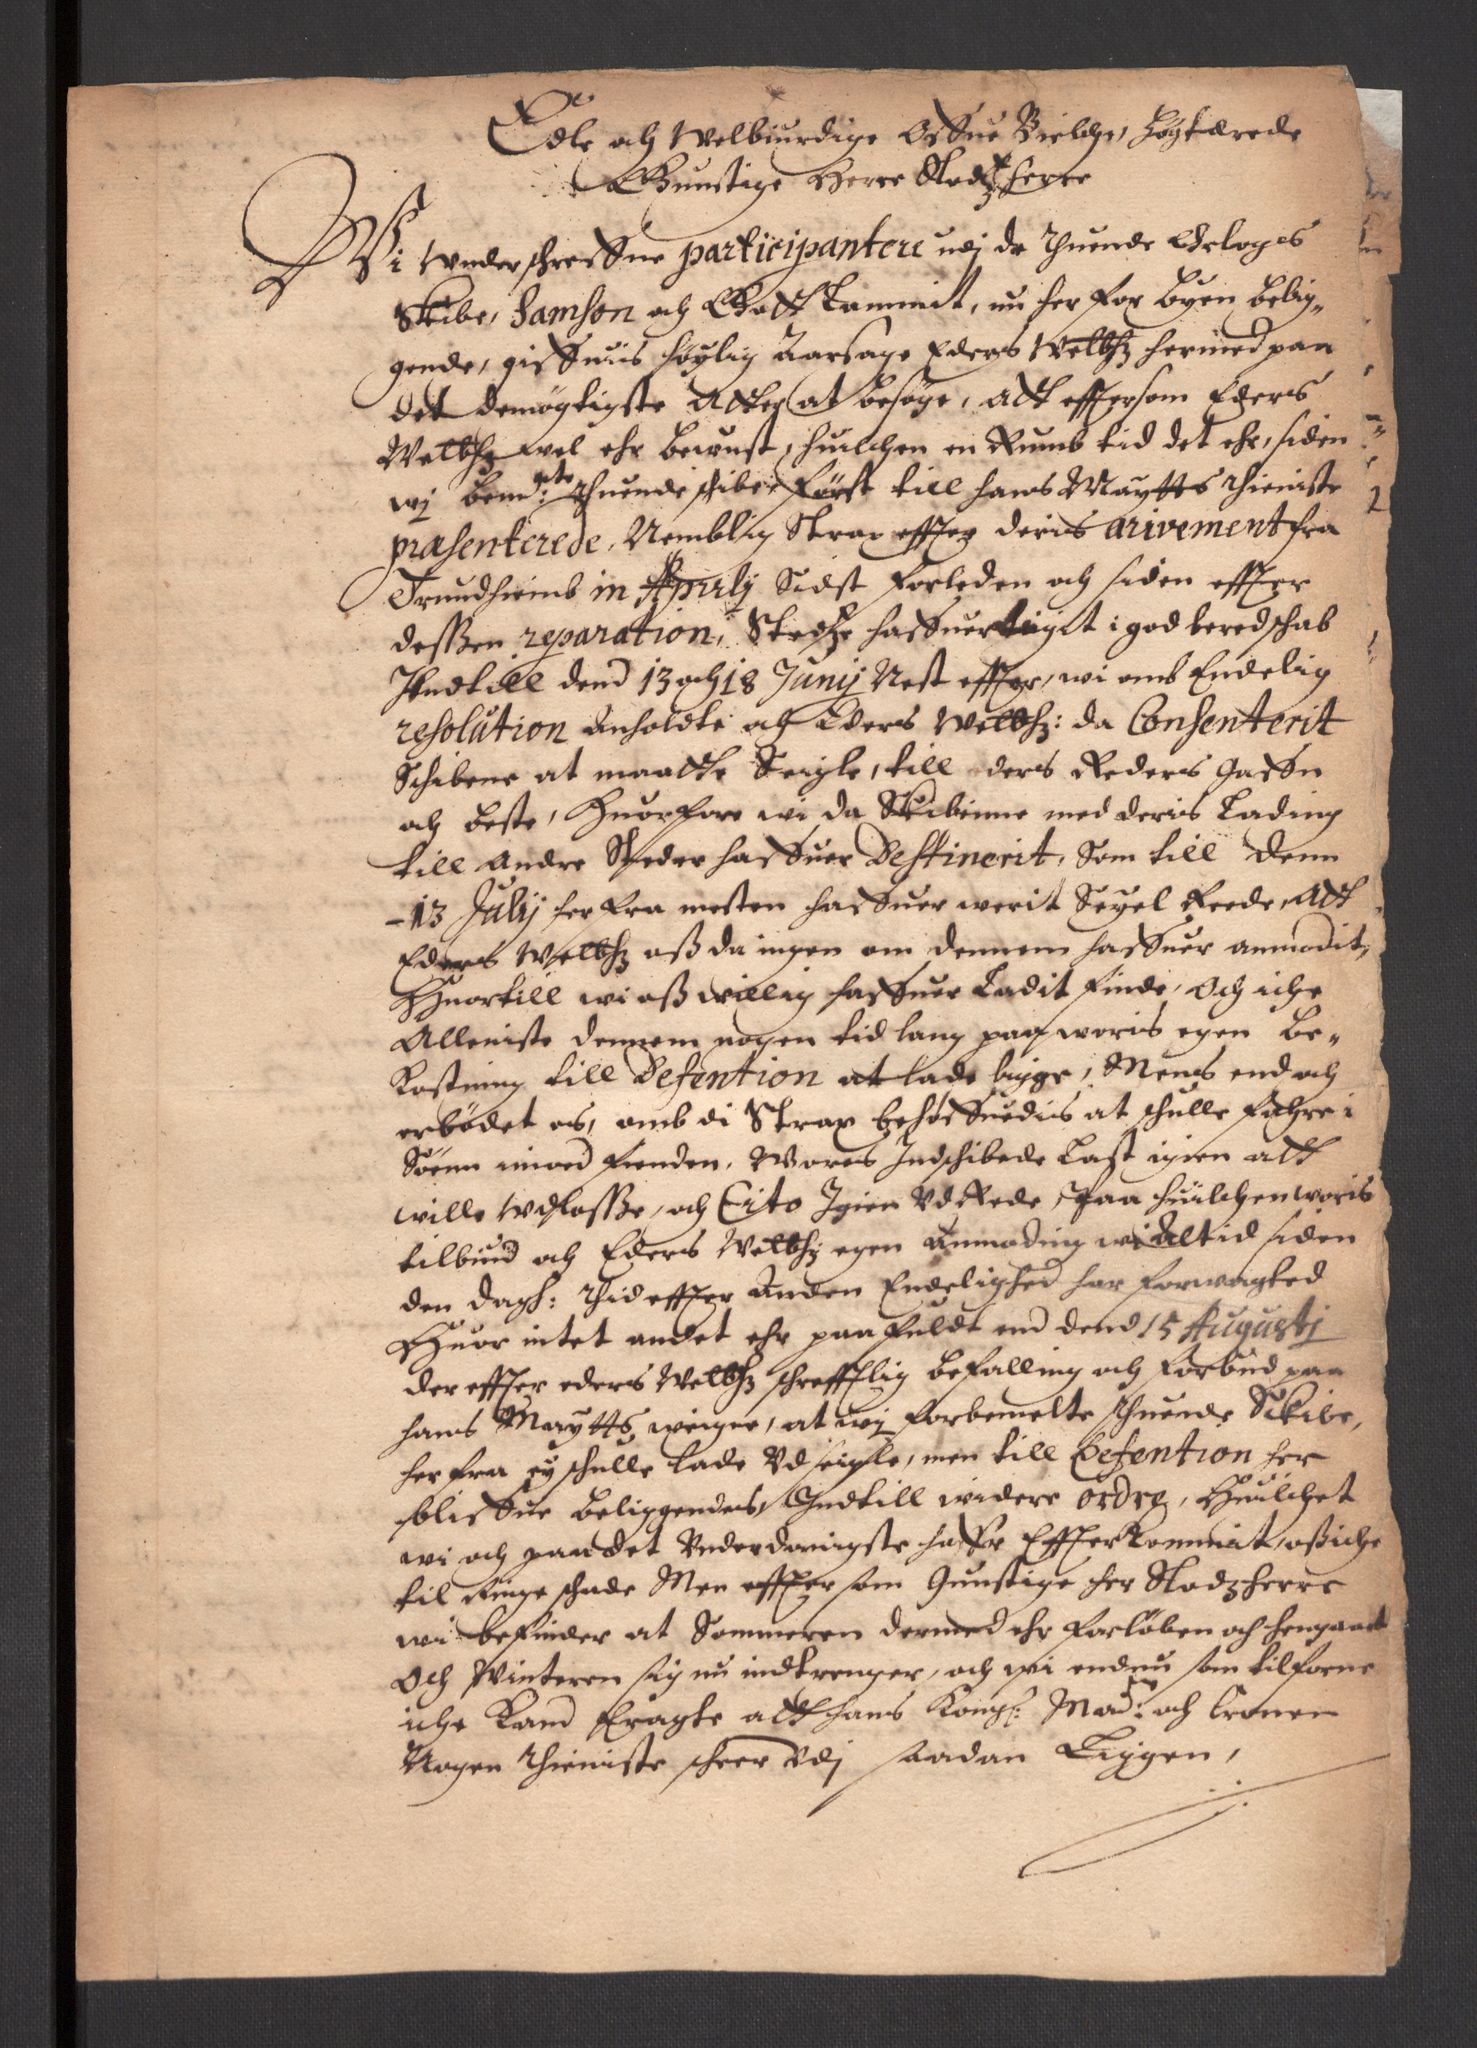 Edle och Welbiurdige Offue Bielche, Høgtærede
Gunstige Herre Stadtzherre
Wi Wnderschreffne participantere udj de thuende Orlogs
Skibe, Samson och Gott kammit, nu her for Byen belig„
gende, giffuis høylig Aarsage Eders Welbhz hermed paa
det demøgtigste atter at besøge, Att effter som Eders
Welbhz wel ehr bewust, huilchen en Rumb tid det ehr, siden
wj bemte: thuende schibe først till hans Maytts thieniste
præsenterede, Nemblig Strax effter deris arivement fra
Trundhiemb in Aprilj Sidst forleden och siden effter
desßen reparation, Stedtze haffuer ligit i god beredschab
Indtill dend 13 och 18 Junij Nest effter, wi omb Endelig
resolution Anholdte och Eders Welbhz: da Consenterit
Schibene at maatte Seigle, till ders Reders Gaffn
och beste, Huorfore wi da Skibinne med deris Lading
till Andre Steder haffuer Destinerit, Som till denn
13 Julij her fra mesten haffuer werit Seyel Reede, Att
Eders Welbhz oß da igen om dennem haffuer anmodit,
Huortill wi oß willig haffuer Ladit finde, Och iche
Alleniste dennem nogen tid lang paa woris egen Be„
kostning till Defention at lade ligge, Mens end och
erbödet os, omb di Strax behøffuedis at schulle fahre i
Søenn imod fienden, Wores Indschibede Last igien att
wille Wdlosße, och Cito Igien Vdrede, Paa huilchen woris
tilbud och Eders Welbhz egen Anmoding wi Altid siden
den Dagh: Thid effter Anden Endelighed har forwagted
Huor intet andet ehr paafuldt end dend 15 Augustj
der effter eders Welbhz schrefftlig befalling och forbud paa
hans Maytts weigne, at wj forbemelte thuende Skibe,
her fra ey schulle lade Vd seigle, men till Defention her
bliffue beliggendes, Indtill widere ordre, Huilchet
wi och paa det Vnderdanigste haffr Effterkommit, oß iche
til ringe schade Men effter som Gunstige her Stadtzherre
wi befinder at Sommeren dermed ehr forløben och hengaat
Och Winteren sig nu indtrenger, och wi endnu som tilforne
iche kand Eragte att hans Kongl: May: och Cronen
Nogen thieniste scheer Vdj saadan Liggen,